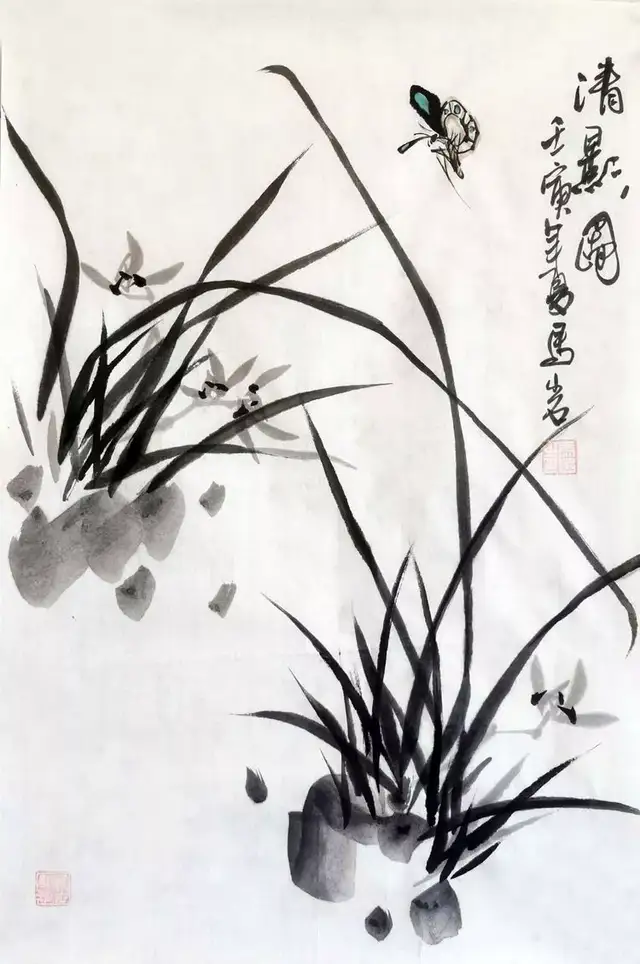 清影圖
壬寅年夏馬岩